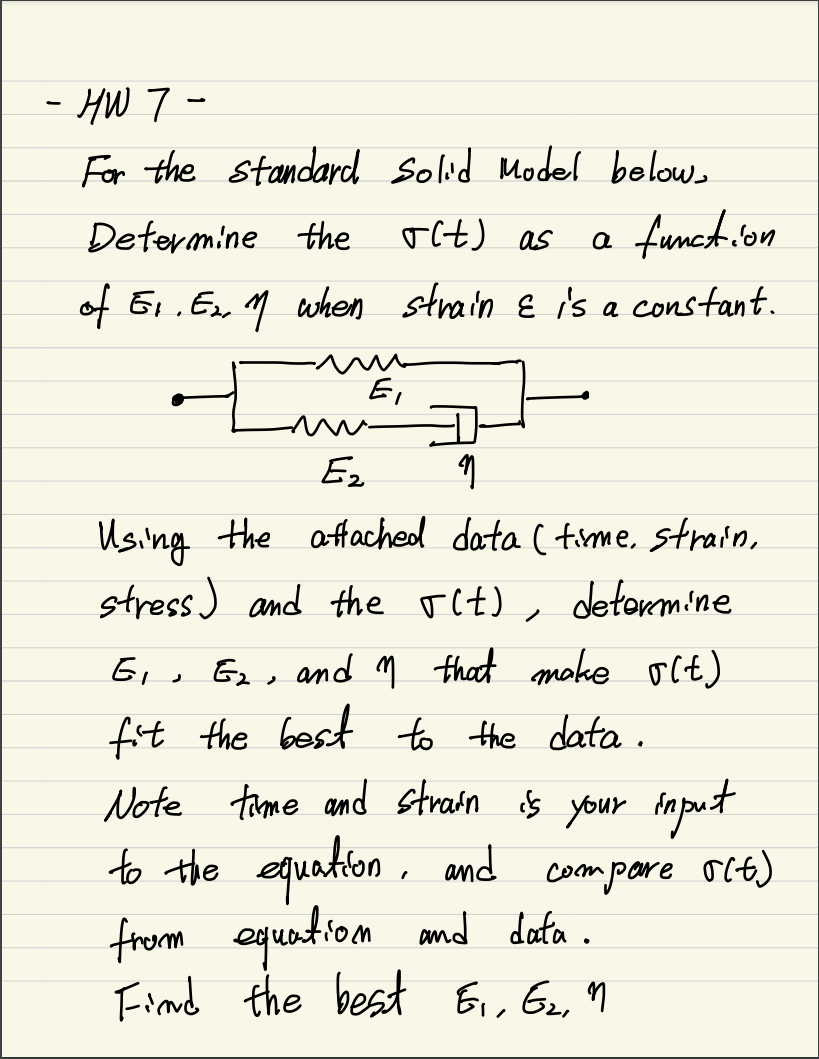 - HW 7 -
For the standard Solid Model below,
Determine the σ(t) as a function
of E₁, E₂, η when strain ε is a constant.
E₁
E₂ η
Using the attached data (time, strain,
stress) and the σ(t), determine
E₁, E₂, and η that make σ(t)
fit the best to the data.
Note time and strain is your input
to the equation, and compare σ(t)
from equation and data.
Find the best E₁, E₂, η